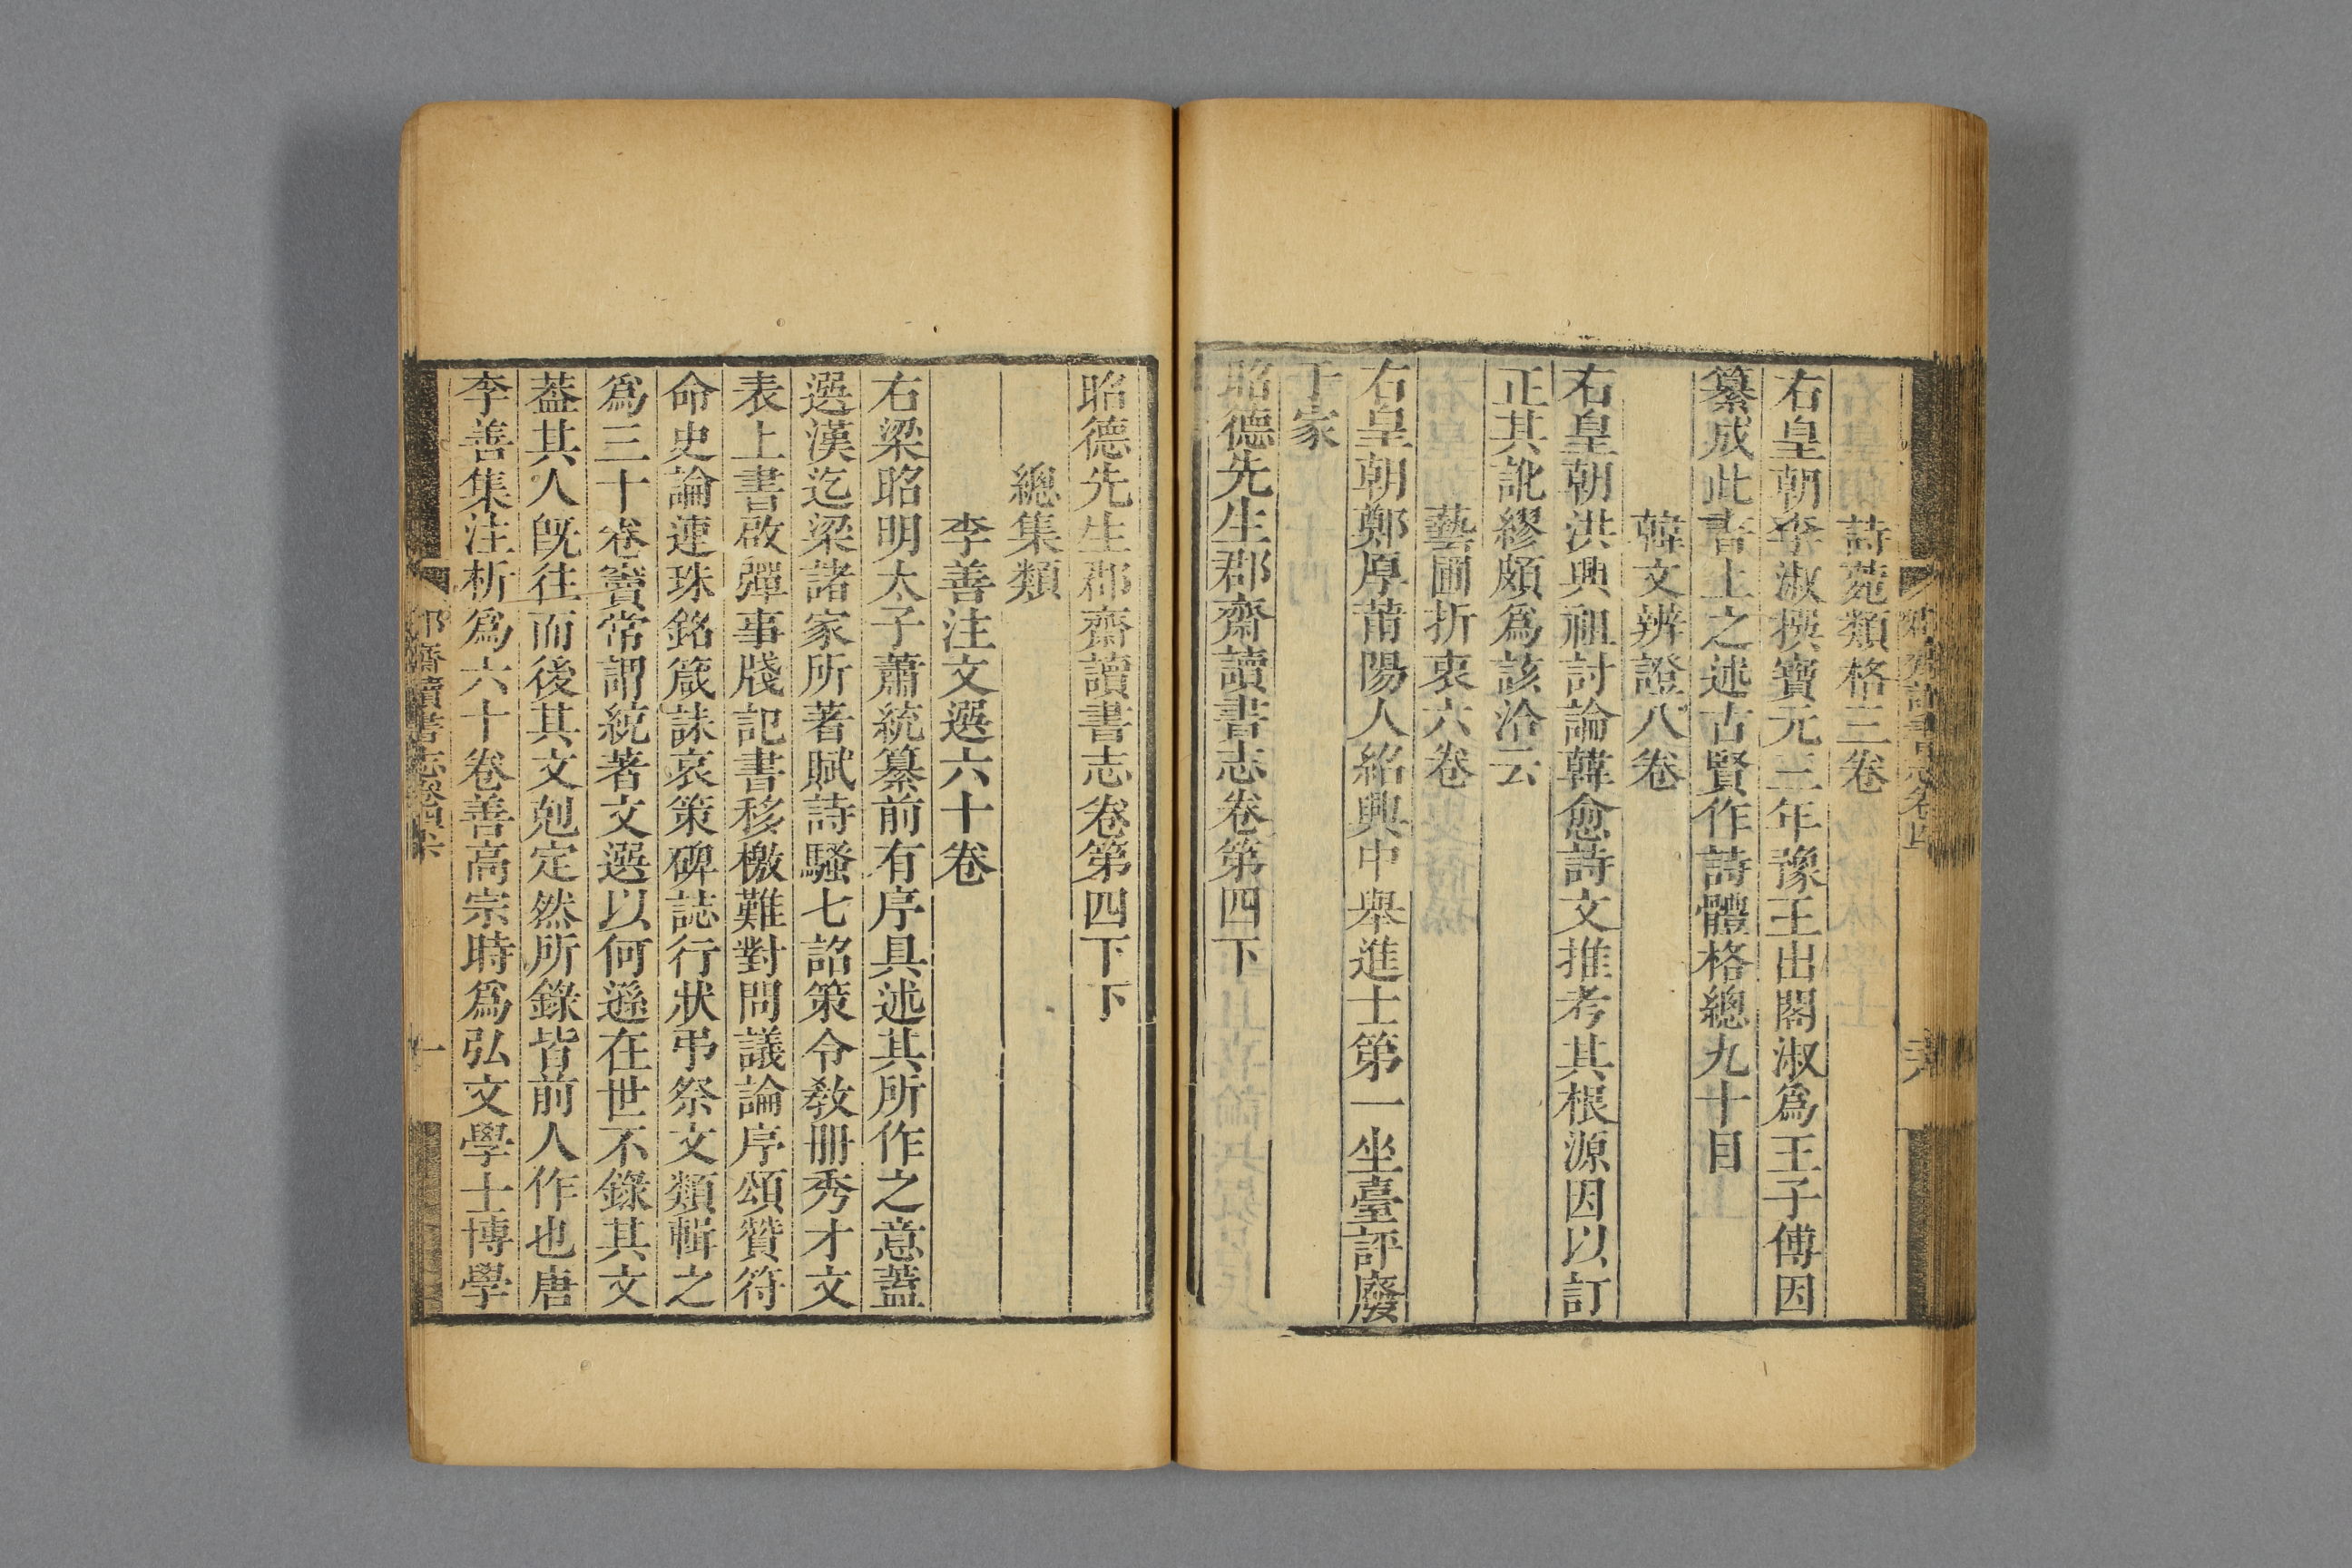 詩苑類格三卷
右皇朝李淑撰寶元三年豫王出閣淑爲王子傅因
纂成此書上之述古賢作詩體格總九十目
韓文辨證八卷
右皇朝洪興祖討論韓愈詩文推考其根源因以訂
正其訛繆頗爲該洽云
藝圃折衷六卷
右皇朝鄭厚莆陽人紹興中舉進士第一坐臺評廢
于家
昭德先生郡齋讀書志卷第四下
昭德先生郡齋讀書志卷第四下下
總集類
李善注文選六十卷
右梁昭明太子蕭統纂前有序具述其所作之意蓋
選漢迄梁諸家所著賦詩騷七詔策令敎冊秀才文
表上書啟彈事牋記書移檄難對問議論序頌贊符
命史論連珠銘箴誄哀策碑誌行狀弔祭文類輯之
爲三十卷竇常謂統著文選以何遜在世不錄其文
蓋其人旣往而後其文尅定然所錄皆前人作也唐
李善集注析爲六十卷善高宗時爲弘文學士博學
郡齋讀書志卷四下
一